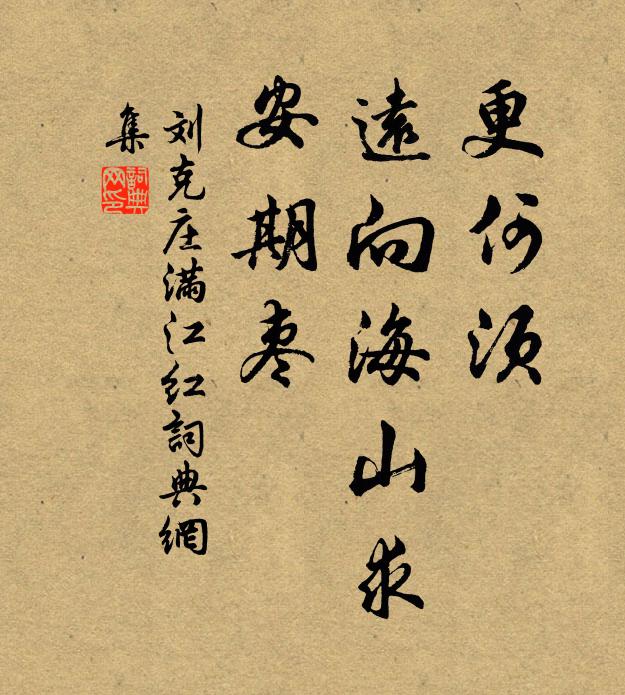 更何須
遠向海山求
安期枣
刘克庄满江红詞典網
集
詞典
网印